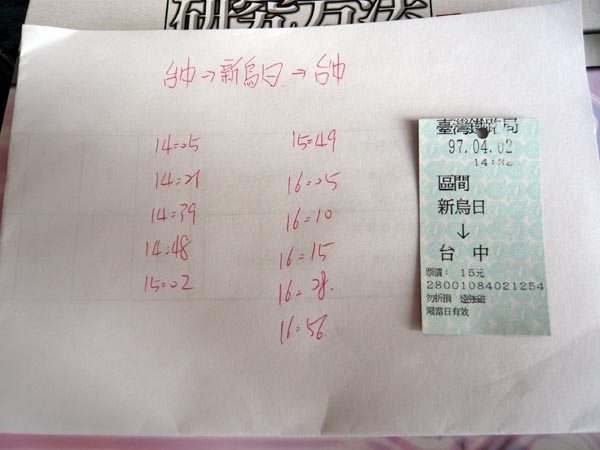 研究方法
台中→新烏日→台中
14:05
14:21
14:39
14:48
15:02
15:49
16:05
16:10
16:15
16:28
16:56
臺灣鐵路局
97.04.02
14:32
區間
新烏日
↓
台中
票價: 15元
28001084021254
勿折損 遠強磁
限當日有效